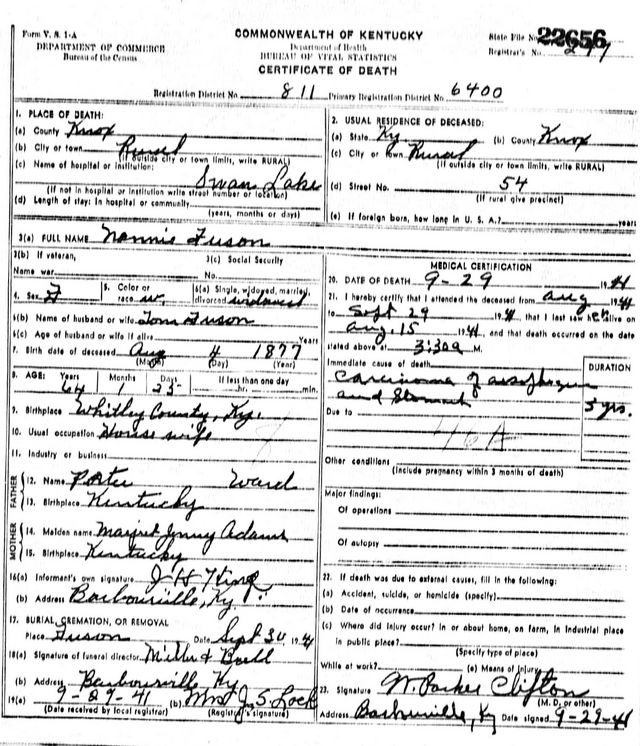 Form V. S. 1-A
DEPARTMENT OF COMMERCE
Bureau of the Census
COMMONWEALTH OF KENTUCKY
Department of Health
BUREAU OF VITAL STATISTICS
CERTIFICATE OF DEATH
State File No. 22656
Registrar's No.
Registration District No. 811 Primary Registration District No. 6400
1. PLACE OF DEATH:
(a) County Knox
(b) City or town Rural
(If outside city or town limits, write RURAL)
(c) Name of hospital or institution:
Swan Lake
(If not in hospital or institution write street number or location)
(d) Length of stay: In hospital or community
(years, months or days)
2. USUAL RESIDENCE OF DECEASED:
(a) State Ky (b) County Knox
(c) City or town Rural
(If outside city or town limits, write RURAL)
(d) Street No. 54
(If rural give precinct)
(e) If foreign born, how long in U. S. A.? years
3(a) FULL NAME Nannie Fuson
3(b) If veteran, 3(c) Social Security
Name war No.
4. Sex F 5. Color or race w. 6(a) Single, widowed, married, divorced widowed
6(b) Name of husband or wife Tom Fuson
6(c) Age of husband or wife if alive Years
7. Birth date of deceased Aug 4 1877
(Month) (Day) (Year)
8. AGE: Years Months Days If less than one day
64 1 25 hr. min.
9. Birthplace Whitley County, Ky.
10. Usual occupation House wife
11. Industry or business
FATHER
12. Name Porter Ward
13. Birthplace Kentucky
MOTHER
14. Maiden name Margret Jenny Adams
15. Birthplace Kentucky
16(a) Informant's own signature J H King
(b) Address Barbourville, Ky.
17. BURIAL, CREMATION, OR REMOVAL
Place Fuson Date Sept 30, 1941
18(a) Signature of funeral director Miller &
(b) Address Barbourville Ky
19(a) 9-29-41 (b) Mrs J. S. Lock
(Date received by local registrar) (Registrar's signature)
MEDICAL CERTIFICATION
20. DATE OF DEATH 9-29 1941
21. I hereby certify that I attended the deceased from Aug 1941
to Sept 29 1941, that I last saw her alive on
Aug. 15 1941, and that death occurred on the date
stated above at 3:30a M.
Immediate cause of death DURATION
Carcinoma of
and Stomach 5 yrs.
Due to
46A
Other conditions
(Include pregnancy within 3 months of death)
Major findings:
Of operations
Of autopsy
22. If death was due to external causes, fill in the following:
(a) Accident, suicide, or homicide (specify)
(b) Date of occurrence
(c) Where did injury occur? in or about home, on farm, in industrial place
in public place?
(Specify type of place)
While at work? (e) Means of injury
23. Signature W. Parker Clifton
(M. D. or other)
Address Barbourville, Ky Date signed 9-29-41